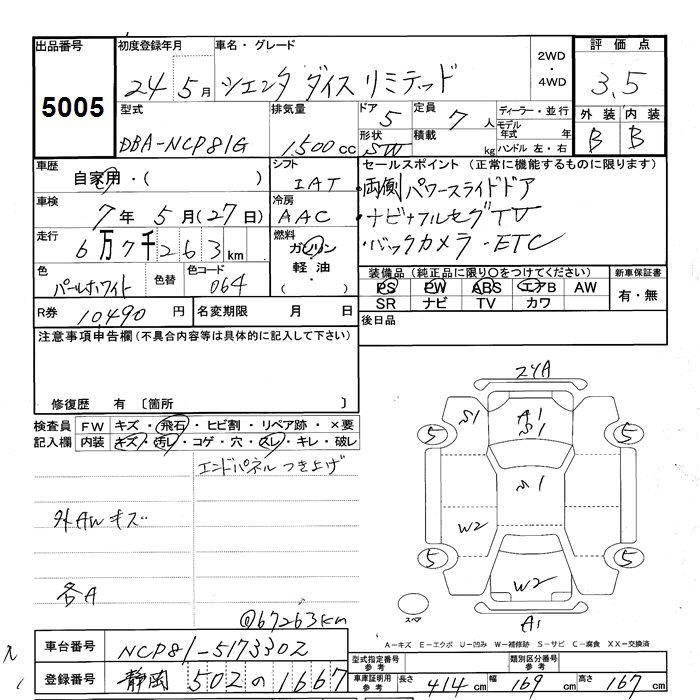 出品番号 5005
初度登録年月 24 5月
車名・グレード シエンタ ダイス リミテッド
2WD ・ 4WD
評価点 3.5
外装 B 内装 B
型式 DBA-NCP81G
排気量 1500cc
ドア 5
形状 SW
定員 7人
積載 kg
ディーラー・並行
モデル年式 年
ハンドル 左・右
車歴 自家用・( )
シフト IAT
セールスポイント (正常に機能するものに限ります)
・両側パワースライドドア
・ナビ・フルセグTV
・バックカメラ・ETC
車検 7年5月(27日)
冷房 AAC
走行 6万7千263km
燃料 ガソリン・軽油・
色 パールホワイト
色替
色コード 064
装備品 (純正品に限り○をつけてください)
PS PW ABS エアB AW
SR ナビ TV カワ
新車保証書 有・無
R券 10,490円
名変期限 月 日
後日品
注意事項申告欄 (不具合内容等は具体的に記入して下さい)
修復歴 有 〔箇所 〕
検査員記入欄
FW キズ・飛石・ヒビ割・リペア跡・×要
内装 キズ・汚れ・コゲ・穴・スレ・キレ・破レ
エンドパネルつき上げ
外AWキズ
各A
@67263km
S1
A1
S1
5
5
S1
W2
5
5
W2
スペア
A1
A-キズ E-エクボ U-凹み W-補修跡 S-サビ C-腐食 XX-交換済
車台番号 NCP81-5173302
登録番号 静岡 502 の 1667
型式指定番号 参考
類別区分番号 参考
車庫証明用参考 長さ 414cm 幅 169cm 高さ 167cm